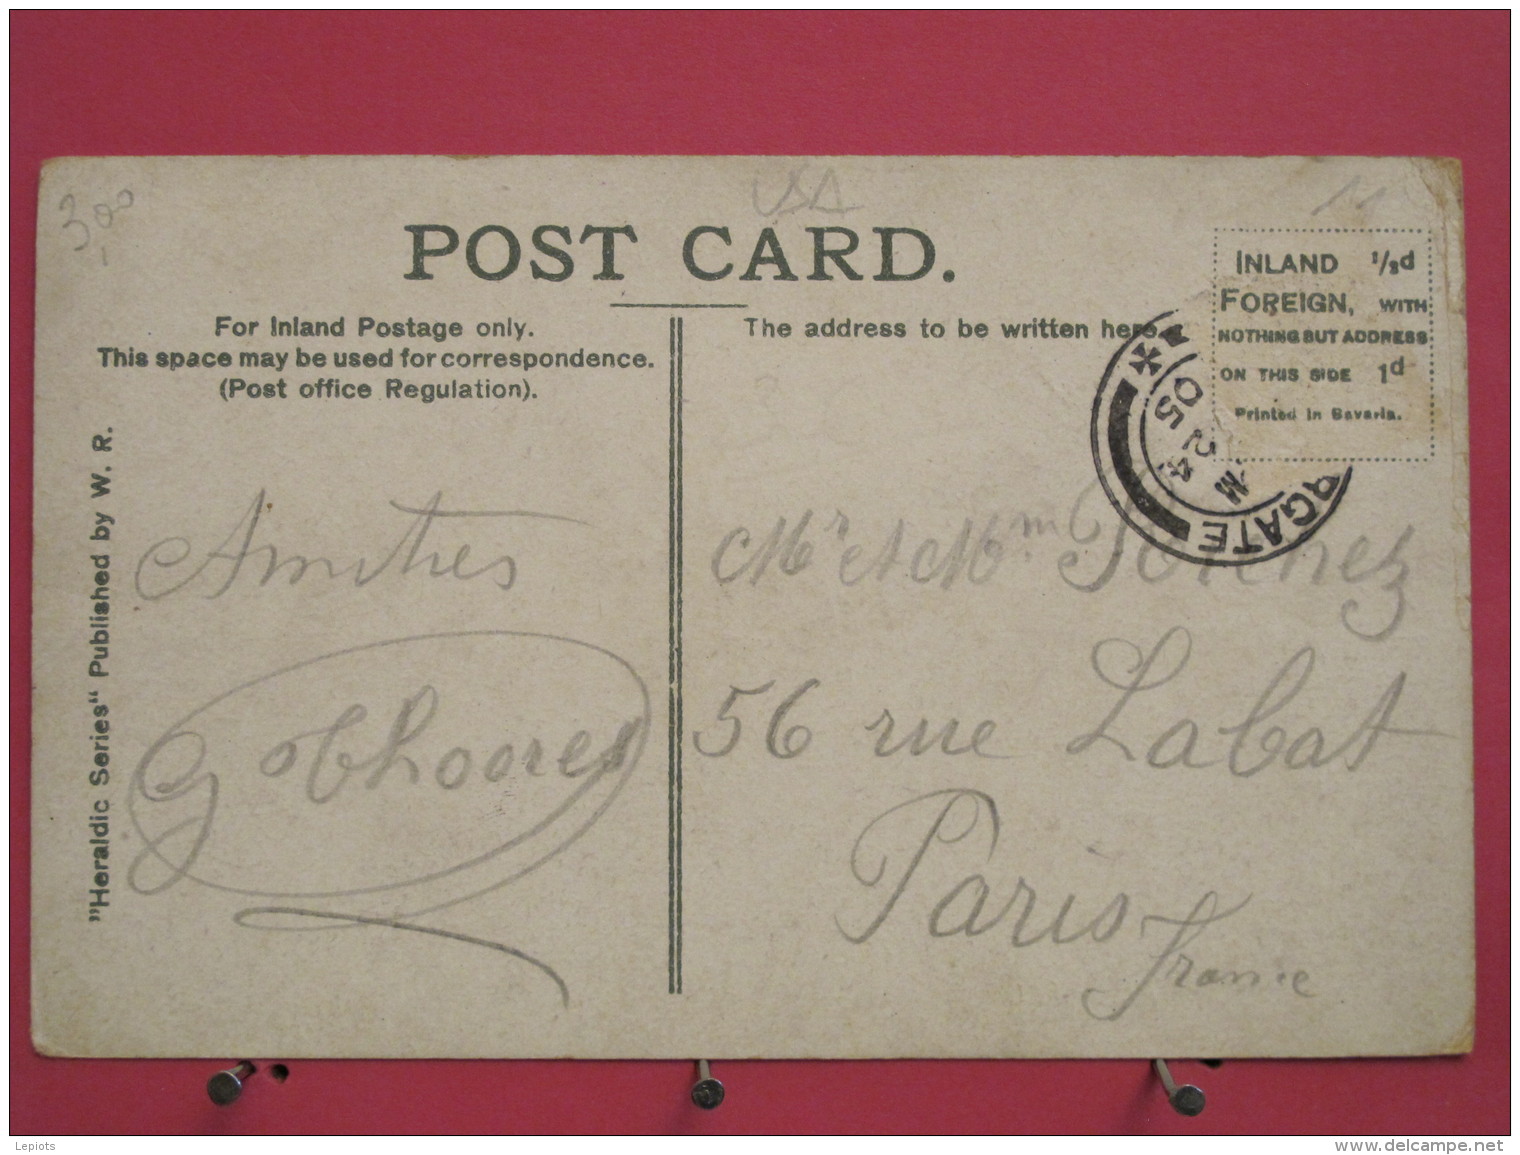 USA
300
11
POST CARD.
For Inland Postage only.
This space may be used for correspondence.
(Post office Regulation).
The address to be written here.
INLAND 1/2d
FOREIGN, WITH
NOTHING BUT ADDRESS
ON THIS SIDE 1d
Printed in Bavaria.
RGATE
M
24
05
"Heraldic Series" Published by W. R.
Amitiés
Mr et Mme
56 rue Labat
Paris
France
Lepiots
www.delcampe.net